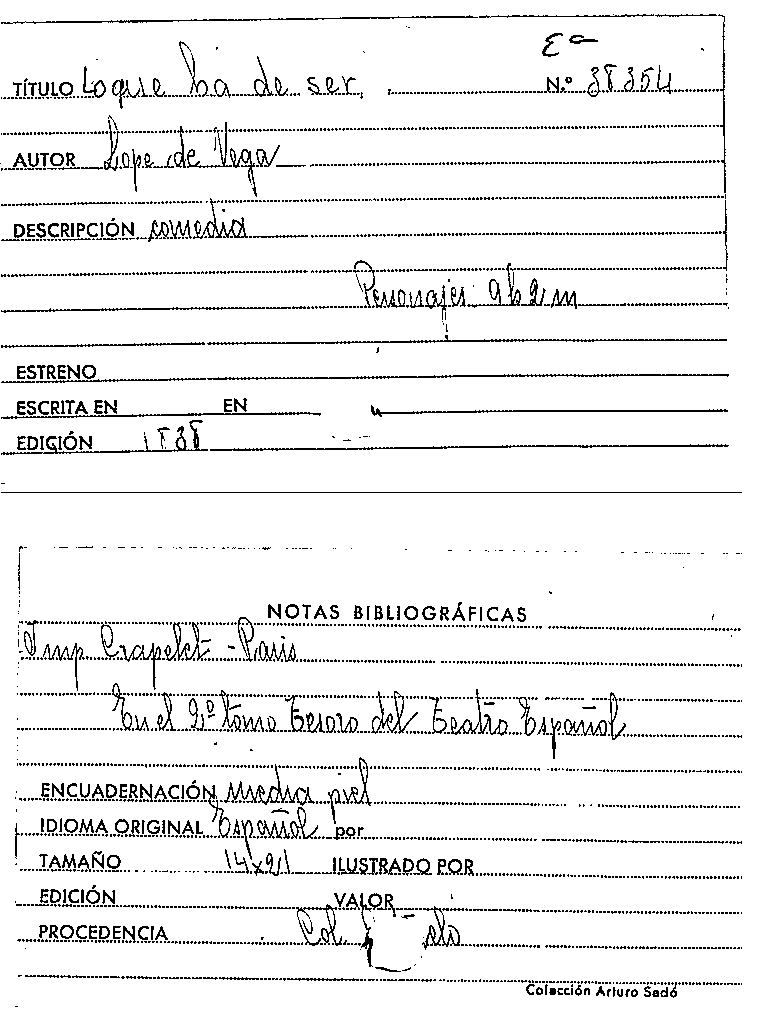 Eª
TÍTULO Lo que ha de ser. N.º 38354
AUTOR Lope de Vega
DESCRIPCIÓN comedia
Personajes 9h 2m
ESTRENO
ESCRITA EN EN
EDICIÓN 1838
NOTAS BIBLIOGRÁFICAS
Imp Crapelet - Paris
En el 2º tomo Tesoro del Teatro Español
ENCUADERNACIÓN Media piel
IDIOMA ORIGINAL Español por
TAMAÑO 14x21 ILUSTRADO POR
EDICIÓN VALOR
PROCEDENCIA Col.
Colección Arturo Sedó